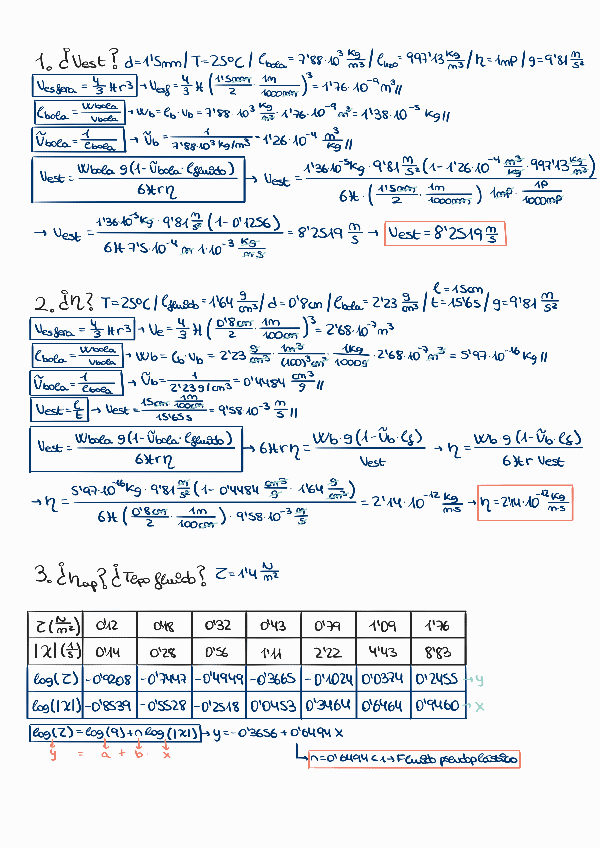 1. ¿Vest? d=1'5mm / T=25ºC / ρbola = 7'88·10³ Kg/m³ / ρH2O = 997'13 Kg/m³ / η = 1mP / g=9'81 m/s²
Vesfera = 4/3 π r³ → Vesf = 4/3 π (1'5mm/2 · 1m/1000mm)³ = 1'76·10⁻⁹ m³//
ρbola = Wbola/Vbola → Wb = ρb·Vb = 7'88·10³ Kg/m³ · 1'76·10⁻⁹ m³ = 1'38·10⁻⁵ Kg//
Ṽbola = 1/ρbola → Ṽb = 1/7'88·10³ Kg/m³ = 1'26·10⁻⁴ m³/Kg
Vest = Wbola g (1-Ṽbola·ρfluido)/6πrη → Vest = 1'36·10⁻⁵Kg · 9'81 m/s² (1-1'26·10⁻⁴ m³/Kg · 997'13 Kg/m³)/6π·(1'5mm/2 · 1m/1000mm) 1mP · 1P/1000mP
→ Vest = 1'36·10⁻⁵Kg · 9'81 m/s² (1-0'1256)/6π 7'5·10⁻⁴ m · 1·10⁻³ Kg/m·s = 8'2519 m/s → Vest = 8'2519 m/s
2. ¿η? T=25ºC / ρfluido = 1'64 g/cm³ / d = 0'8cm / ρbola = 2'23 g/cm³ / ℓ = 15cm / t = 15'65s / g = 9'81 m/s²
Vesfera = 4/3 π r³ → Ve = 4/3 π (0'8cm/2 · 1m/100cm)³ = 2'68·10⁻⁷ m³
ρbola = Wbola/Vbola → Wb = ρb·Vb = 2'23 g/cm³ · 1m³/(100)³cm³ · 1Kg/1000g · 2'68·10⁻⁷ m³ = 5'97·10⁻¹⁶ Kg//
Ṽbola = 1/ρbola → Ṽb = 1/2'23g/cm³ = 0'4484 cm³/g //
Vest = ℓ/t → Vest = 15cm · 1m/100cm/15'65s = 9'58·10⁻³ m/s //
Vest = Wbola g (1-Ṽbola·ρfluido)/6πrη → 6πrη = Wb·g(1-Ṽb·ρf)/Vest → η = Wb g (1-Ṽb·ρf)/6πr Vest
→ η = 5'97·10⁻¹⁶Kg · 9'81 m/s² (1-0'4484 cm³/g · 1'64 g/cm³)/6π (0'8cm/2 · 1m/100cm) · 9'58·10⁻³ m/s = 2'14·10⁻¹² Kg/m·s → η = 2'14·10⁻¹² Kg/m·s
3. ¿ηap? ¿Tipo fluido? τ = 1'4 N/m²
τ (N/m²) 0'12 0'18 0'32 0'43 0'79 1'09 1'76
|γ| (1/s) 0'14 0'28 0'56 1'11 2'22 4'43 8'83
log(τ) -0'9208 -0'7447 -0'4949 -0'3665 -0'1024 0'0374 0'2455 → y
log(|γ|) -0'8539 -0'5528 -0'2518 0'0453 0'3464 0'6464 0'9460 → x
log(τ) = log(q) + n log(|γ|) → y = -0'3656 + 0'6494 x
y = a + b · x
n = 0'6494 < 1 → Fluido pseudoplástico